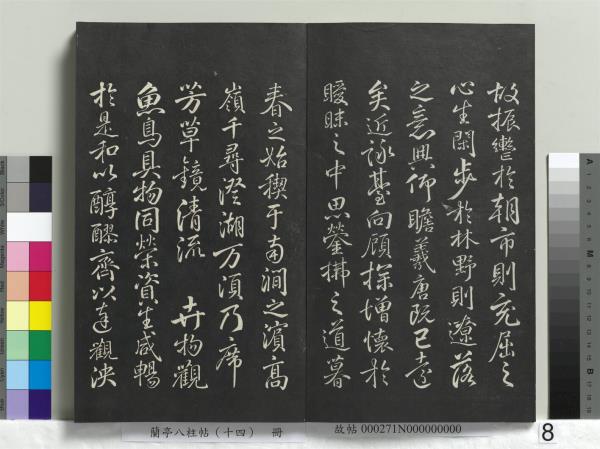 故振轡於朝市則充屈之
心生閑步於林野則遼落
之意興仰瞻羲唐既已遠
矣近詠臺向顧探增懷於
曖昧之中思瑩拂之道暮
春之始禊于南澗之濱高
嶺千尋澄湖万頃乃席
芳草鏡清流 卉物觀
魚鳥具物同榮資生咸暢
於是和以醇醪齊以達觀泱
蘭亭八柱帖（十四） 冊
故帖 000271N000000000
8